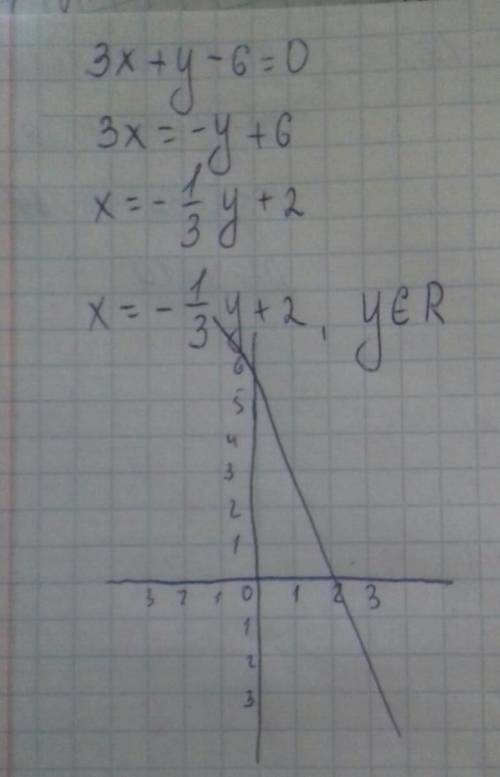 3x+y-6=0
3x=-y+6
x=-1/3 y+2
x=-1/3 y+2, y∈R
6
5
4
3
2
1
3 2 1 0 1 2 3
1
2
3